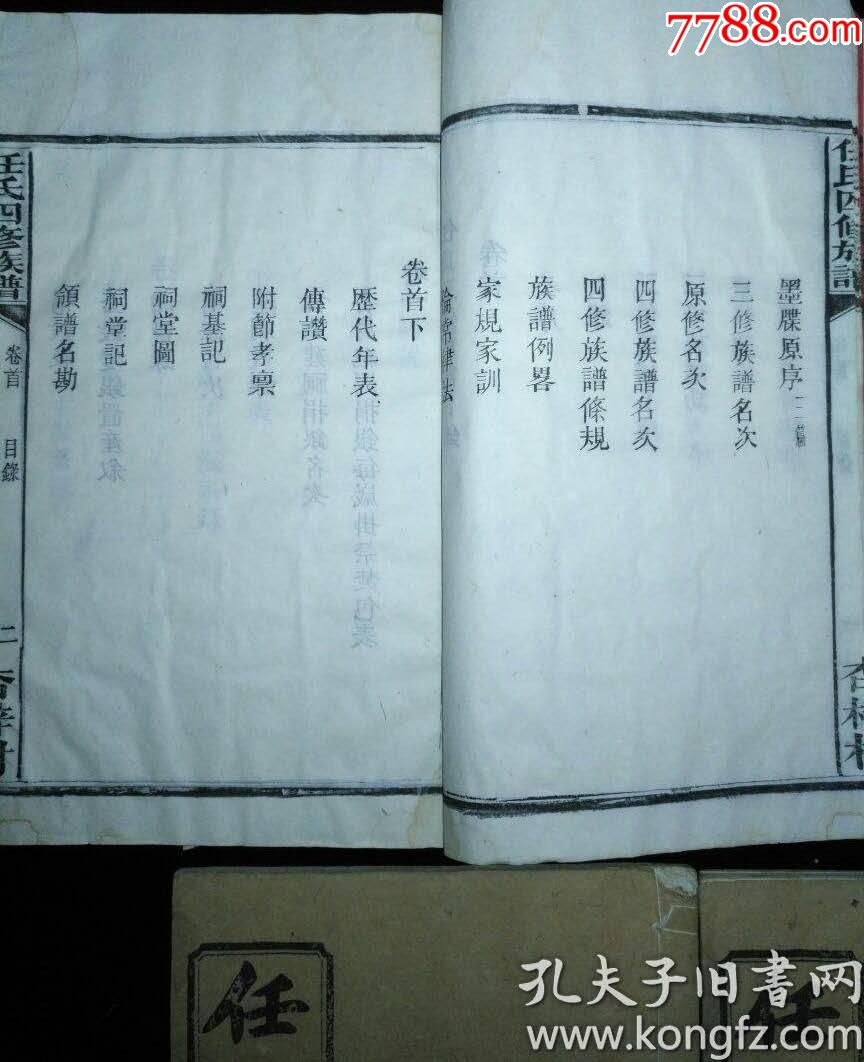 7788.com
任氏四修族譜
墨牒原序
三修族譜名次
原修名次
四修族譜名次
四修族譜條規
族譜例畧
家規家訓
倫常律法
卷首下
歷代年表
傳讚
附節孝禀
祠基記
祠堂圖
祠堂記
領譜名勘
任氏四修族譜
卷首
目錄
二
杏梓村
任
任
孔夫子旧书网
www.kongfz.com